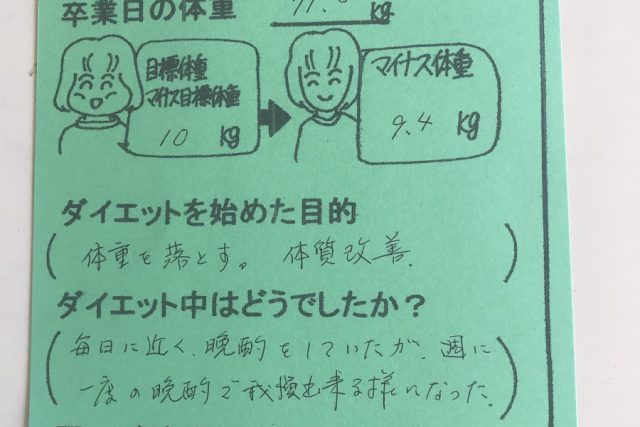 卒業日の体重
kg
目標体重
マイナス目標体重
10 kg
マイナス体重
9.4 kg
ダイエットを始めた目的
(体重を落とす。 体質改善.)
ダイエット中はどうでしたか？
(毎日に近く、晩酌をしていたが、週に
一度の晩酌で我慢出来る様になった.)